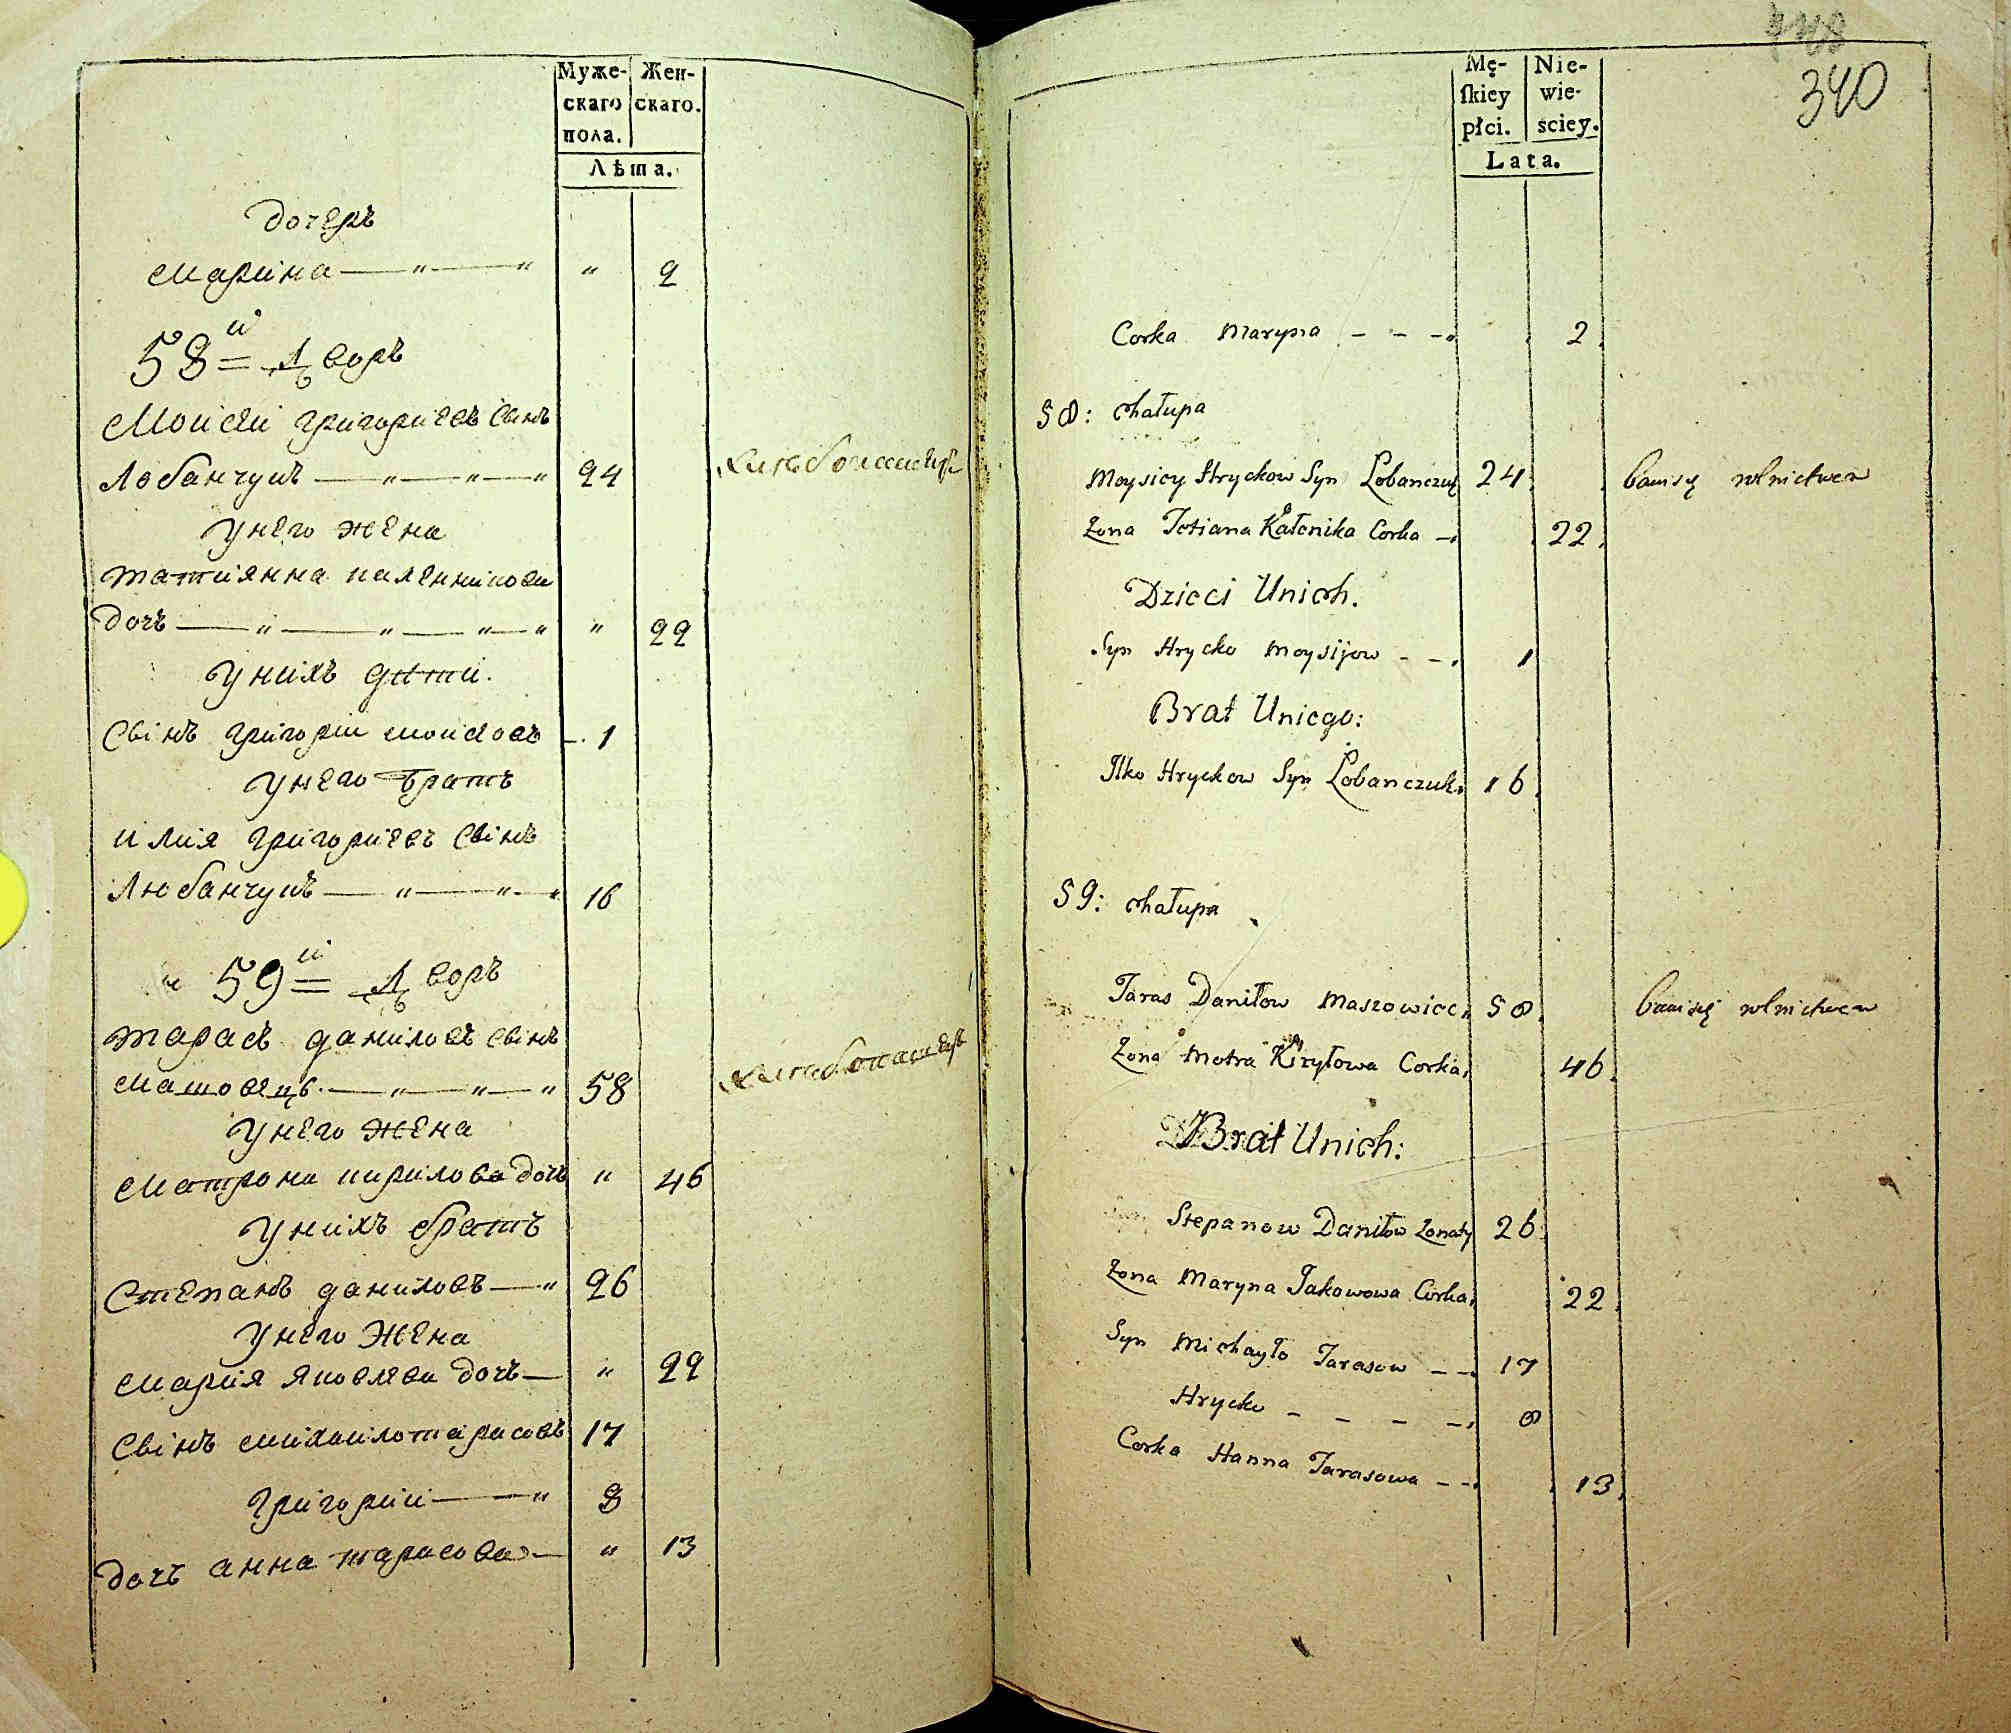 Муже-
скаго
пола.
Жен-
скаго.
Лѣта.
дочеръ
Марина — „ — „ „ 2
58й Дворъ
Моисей григориевъ Свінъ
Лобанчукъ — „ — „ — „ 24 хлѣбопашецъ
у него жена
татиянна каленикова
дочъ — „ — „ — „ — „ „ 22
у нихъ дѣти.
Свінъ григорий моисеовъ — 1
у него братъ
илия григориевъ Свінъ
Любанчукъ — „ — „ — „ 16
59й Дворъ
тарасъ даниловъ свінъ
машовецъ. — „ — „ — „ 58 хлѣбопашецъ
у него жена
матрона кирилова дочъ „ 46
у нихъ братъ
Степанъ даниловъ — „ 26
у него жена
мария яковлева дочъ — „ 22
Свінъ михаило тарасовъ 17
григорий — „ 8
дочъ анна тарасова — „ 13
340
Mę-
skiey
płci.
Nie-
wie-
sciey.
Lata.
Corka Maryna - - - 2.
58: chałupa
Moysiey Hryckow Syn Łobanczuk 24. bawi się rolnictwem
Zona Tetiana Kałenika Corka - 22.
Dzieci Unich.
Syn Hrycko Moysijow - - . 1
Brat Uniego:
Ilko Hryckow Syn Łobanczuk. 16.
59: chałupa
Taras Daniłow Maszowiec. 58. bawi się rolnictwem
Zona Motra Kiryłowa Corka. 46.
Brat Unich:
Stepanow Daniłow Zonaty 26.
Zona Maryna Jakowowa Corka. 22.
Syn Michayło Tarasow - - . 17
Hrycko - - - - . 8
Corka Hanna Tarasowa - - . 13.